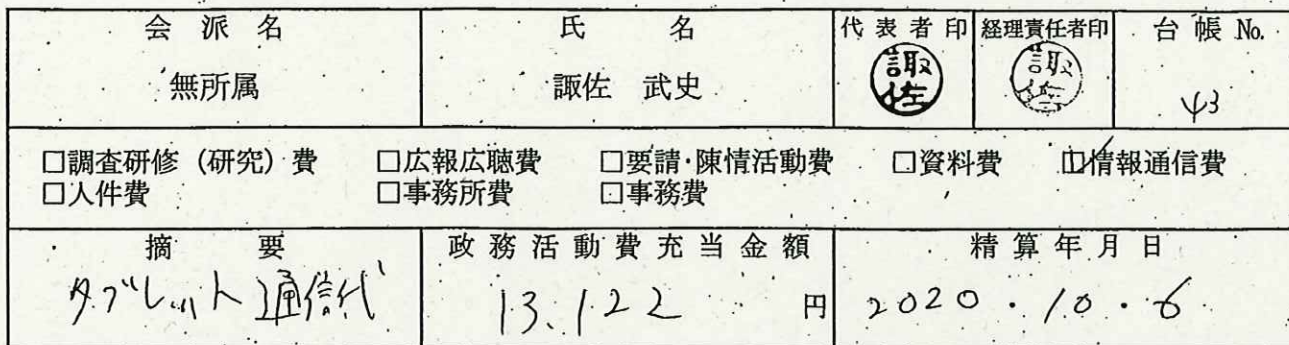 会派名 氏名 代表者印 経理責任者印 台帳No.
無所属 諏佐 武史 諏佐 諏佐 43
□調査研修（研究）費 □広報広聴費 □要請・陳情活動費 □資料費 ☑情報通信費
□人件費 □事務所費 □事務費
摘要 政務活動費充当金額 精算年月日
タブレット通信代 13,122 円 2020・10・6